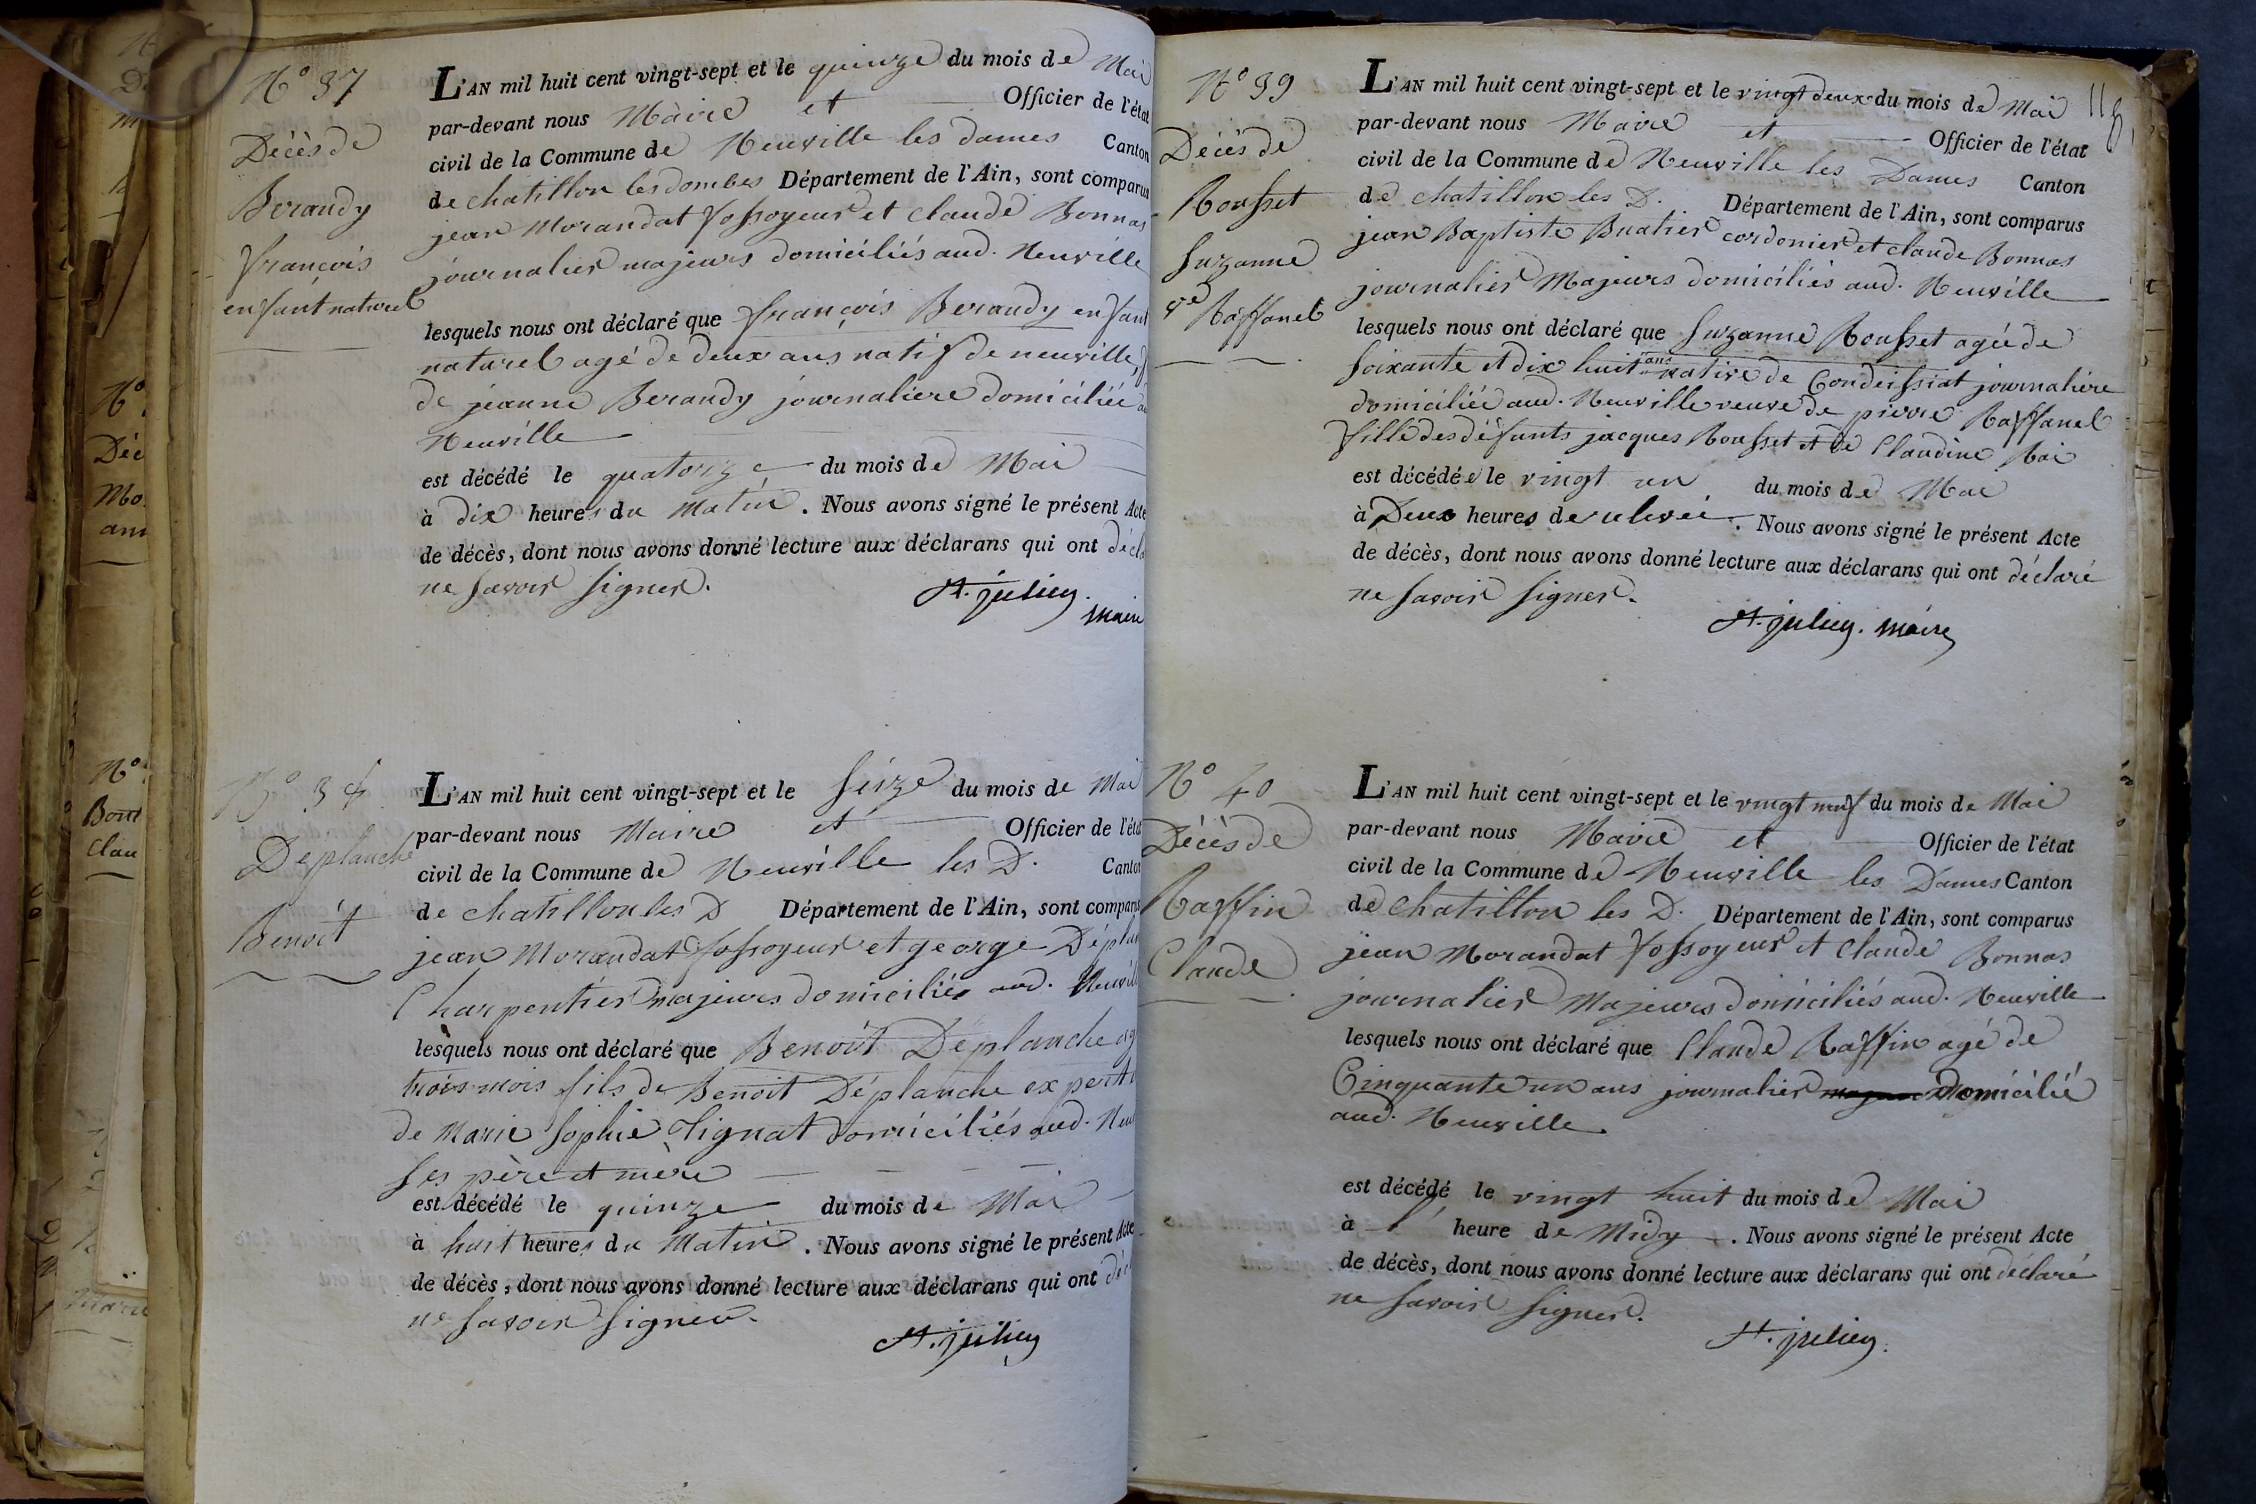 N° 37
Décès de
Berandy
françois
enfant naturel
L'AN mil huit cent vingt-sept et le quinze du mois de Mai
par-devant nous Maire et Officier de l'état
civil de la Commune de Neuville les dames Canton
de chatillon les dombes Département de l'Ain, sont comparus
jean Morandat fossoyeur et Claude Bonnas
journalier majeurs domiciliés aud. Neuville
lesquels nous ont déclaré que françois Berandy enfant
naturel agé de deux ans natif de neuville,
de jeanne Berandy journaliere domiciliée
Neuville
est décédé le quatorze du mois de Mai
à dix heures du Matin. Nous avons signé le présent Acte
de décès, dont nous avons donné lecture aux déclarans qui ont décla
ne savoir signer.
St. julien.
Maire
N° 38
Déplanche
Benoit
L'AN mil huit cent vingt-sept et le seize du mois de Mai
par-devant nous Maire et Officier de l'état
civil de la Commune de Neuville les D. Canton
de chatillon les D Département de l'Ain, sont comparus
jean Morandat fossoyeur et george Déplan
Charpentier majeurs domiciliés aud. Neuvill
lesquels nous ont déclaré que Benoit Déplanche ag
trois mois fils de Benoit Déplanche expert
de Marie Sophie Tignat domiciliés aud. Neu
ses père et mère
est décédé le quinze du mois de Mai
à huit heures du Matin. Nous avons signé le présent Acte
de décès, dont nous avons donné lecture aux déclarans qui ont déc
ne savoir signer.
St. julien
118
N° 39
Décès de
Rousset
Suzanne
ve Raffanel
L'AN mil huit cent vingt-sept et le vingt deux du mois de Mai
par-devant nous Maire et Officier de l'état
civil de la Commune de Neuville les Dames Canton
de chatillon les D. Département de l'Ain, sont comparus
jean Baptiste Buatier cordonier et claude Bonnas
journalier Majeurs domiciliés aud. Neuville
lesquels nous ont déclaré que Suzanne Rousset agée de
soixante et dix huit ans native de Condeissiat journaliere
domiciliée aud. Neuville veuve de pierre Raffanel
fille des défunts jacques Rousset et de Claudine Rai
est décédée le vingt un du mois de Mai
à Deux heures de relevée. Nous avons signé le présent Acte
de décès, dont nous avons donné lecture aux déclarans qui ont déclaré
ne savoir signer.
St. julien. Maire
N° 40
Décès de
Raffin
Claude
L'AN mil huit cent vingt-sept et le vingt neuf du mois de Mai
par-devant nous Maire et Officier de l'état
civil de la Commune de Neuville les Dames Canton
de Chatillon les D. Département de l'Ain, sont comparus
jean Morandat fossoyeur et Claude Bonnas
journalier Majeurs domiciliés aud. Neuville
lesquels nous ont déclaré que Claude Raffin agé de
Cinquante un ans journalier domicilié
aud. Neuville
est décédé le vingt huit du mois de Mai
à l' heure de Midy. Nous avons signé le présent Acte
de décès, dont nous avons donné lecture aux déclarans qui ont déclaré
ne savoir signer.
St. julien.